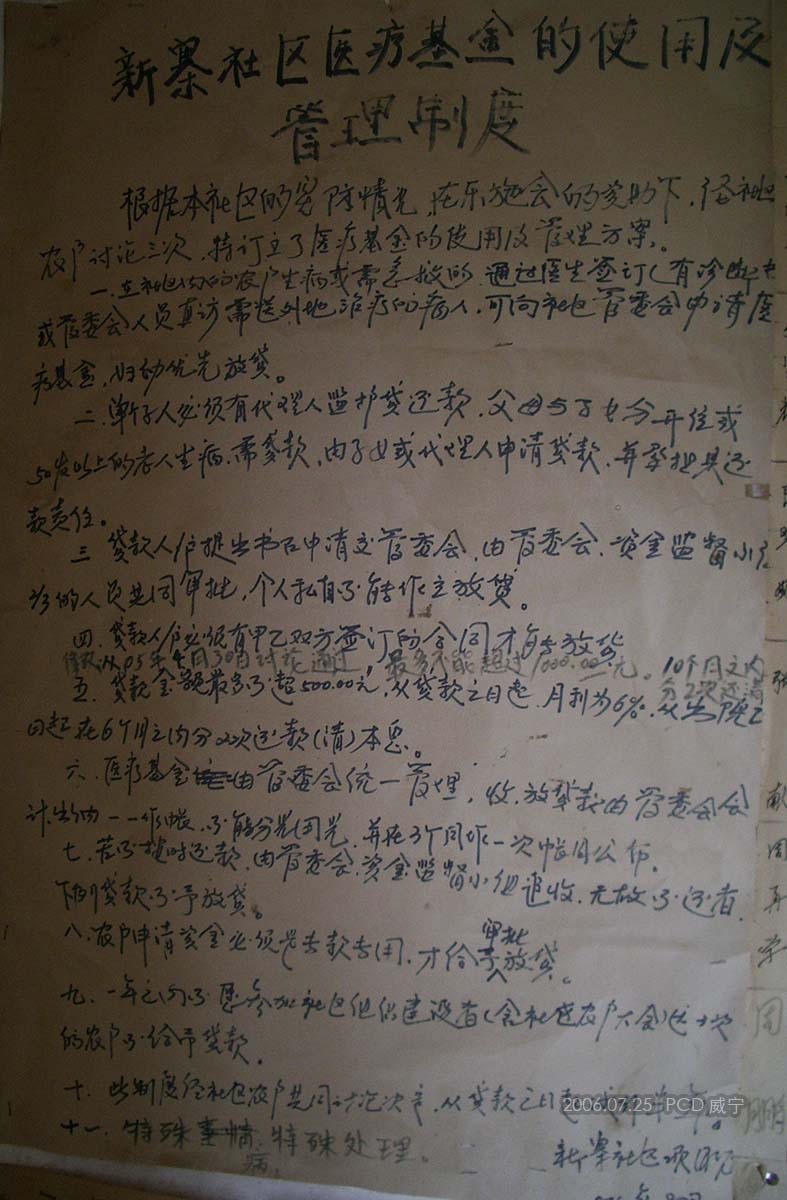 新寨社区医疗基金的使用及
管理制度
根据本社区的实际情况,在乐施会的资助下,经社区
农户讨论三次,特订立了医疗基金的使用及管理方案。
一.在社区内的农户生病或需急救的,通过医生签订(有诊断书
或管委会人员真访需送外地治疗的病人,可向社区管委会申请医
疗基金,妇幼优先放贷。
二.单行人必须有代理人监护贷还款,父母与子女分开住或
50岁以上的老人生病.需贷款,由子女或代理人申请贷款,并承担其还
款责任。
三.贷款人户提出书面申请交管委会,由管委会.资金监督小
的人员共同审批,个人私自不能作主放贷。
四.贷款人户必须有甲乙双方签订的合同才能放贷
从05年4月30日讨论通过,最多不能超过1000.00元。10个月之内
分2次还清
五.贷款金额最多不超500.00元,从贷款之日起,月利为6%.从
日起在6个月之内分2次还款(清)本息。
六.医疗基金由管委会统一管理,收.放贷款由管委会会
计.出纳一一作帐,不能分光用光,并在3个月作一次帐目公布.
七.若不按时还款,由管委会.资金监督小组追收.无故不还者
下例贷款不予放贷。
八.农户申请资金必须是专款专用,才给审批放贷。
九.一年之内不愿参加社区组织建设者(含社区农户大会)
的农户不给予贷款.
十.此制度经社区农户共同讨论决定,从贷款之日起
十一.特殊事情.特殊处理。
病
新寨社区项目
2006.07.25 PCD 威宁